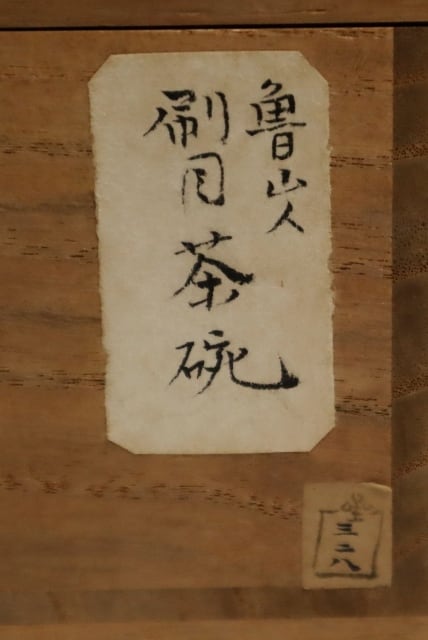 魯山人
刷目茶碗
三二八